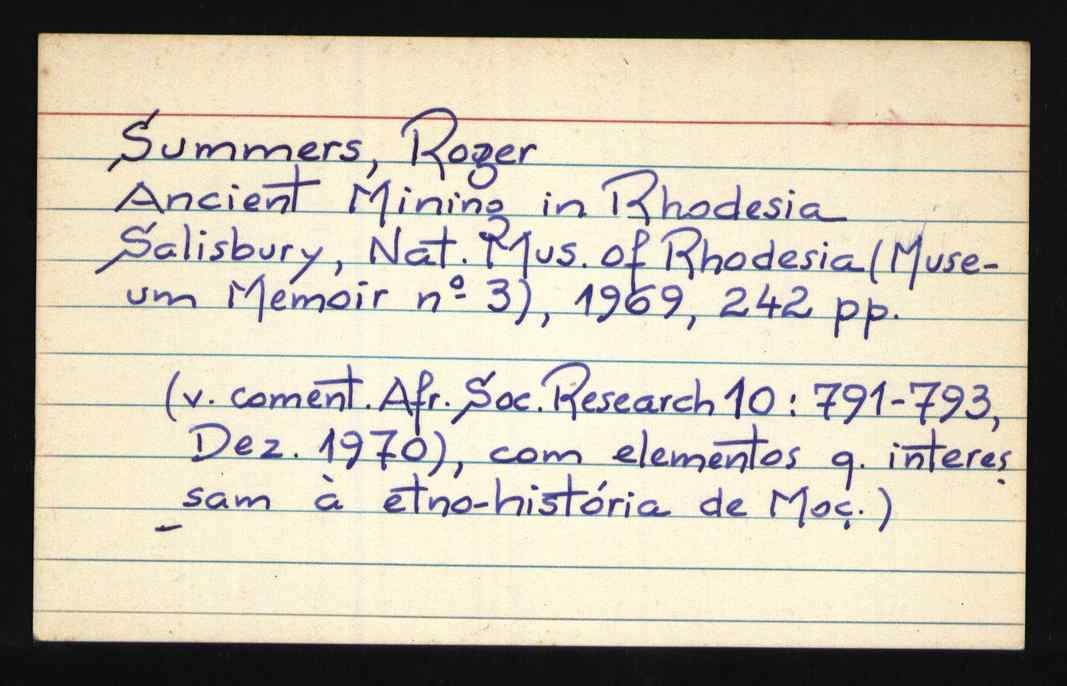 Summers, Roger
Ancient Mining in Rhodesia
Salisbury, Nat. Mus. of Rhodesia (Muse-
um Memoir nº 3), 1969, 242 pp.
(v. coment. Afr. Soc. Research 10 : 791-793,
Dez. 1970), com elementos q. interes
sam à etno-história de Moç.)